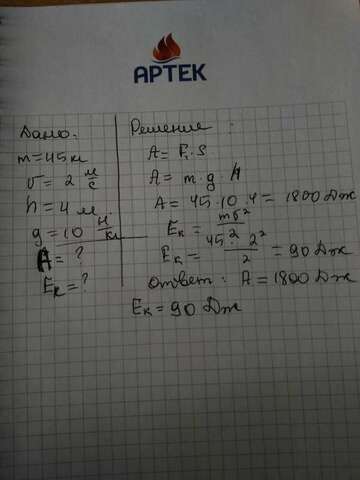 АРТЕК
Дано:
m=45кг
υ= 2 м/с
h=4 м
g=10 Н/кг
A= ?
Eк=?
Решение :
A= F·S
A= m·g·h
A= 45·10·4= 1800 Дж
Eк= mυ²/2
Eк= 45·2²/2 = 90 Дж
ответ: A=1800 Дж
Eк=90 Дж